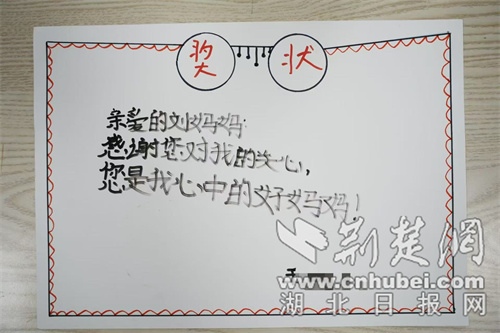 奖 状
亲爱的刘妈妈:
感谢您对我的关心,
您是我心中的好妈妈!
荆楚网
www.cnhubei.com
湖北日报网